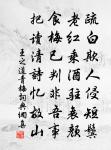 疏白欺人侵短鬢
老紅乘酒駐衰顏
食梅已判非吾事
把讀清詩憶故山
王之道青梅詞典網書